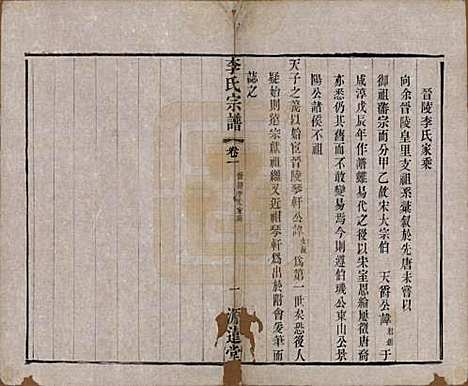 晉陵李氏家乘
向余晉陵皇里支祖系彙敘於先唐未嘗以
御祖藩宗而分甲乙故宋大宗伯 天爵公諱 于
咸淳戊辰年作譜雖易代之後以宋室恩綸屢徵唐裔
亦悉仍其舊而不敢變易焉今則遵伯璣公東山公景
陽公諸侯不祖
天子之說以始宦晉陵琴軒公諱 為第一世矣恐後人
疑始則遠宗獻祖繼又近祖琴軒為出於附會爰筆而
誌之
李氏宗譜 卷一 一